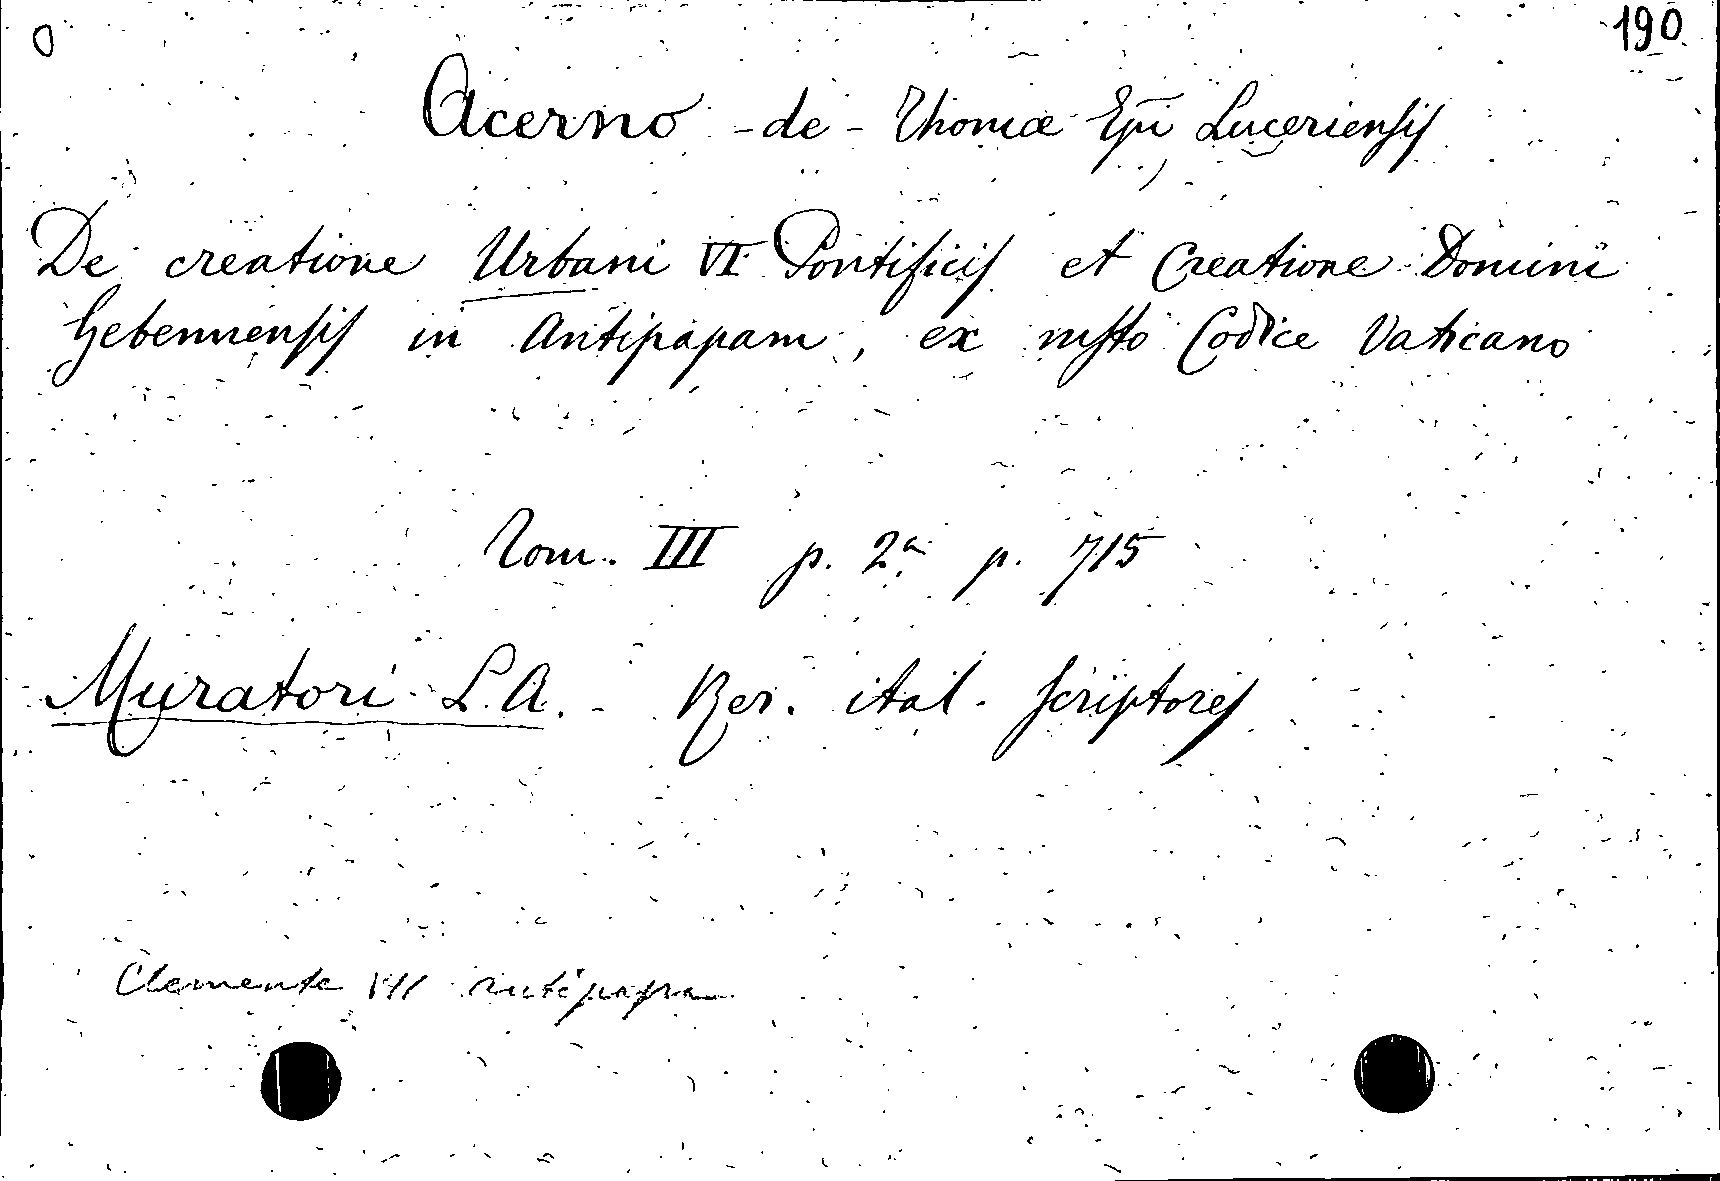 0 190
Acerno - de - Thomæ Epi Luceriensis
De creatione Urbani VI Pontificis et Creatione Domini
Gebennensis in Antipapam, ex msto Codice Vaticano
Tom. III p. 2ª p. 715
Muratori L.A. - Rer. ital. Scriptores
Clemente VII antipapa